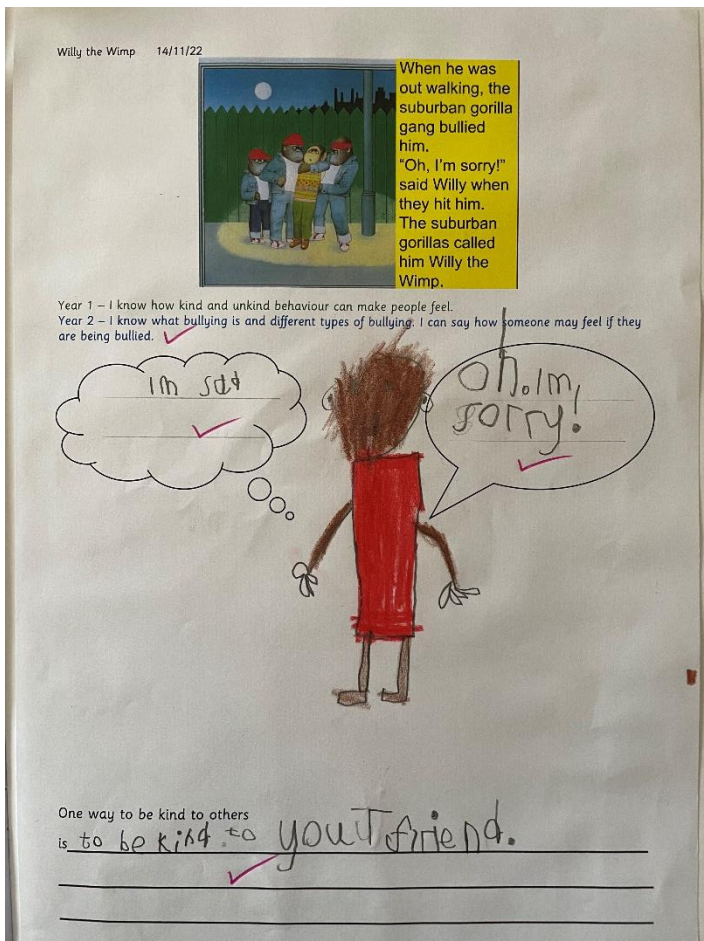 Willy the Wimp 14/11/22
When he was
out walking, the
suburban gorilla
gang bullied
him.
"Oh, I'm sorry!"
said Willy when
they hit him.
The suburban
gorillas called
him Willy the
Wimp.
Year 1 – I know how kind and unkind behaviour can make people feel.
Year 2 – I know what bullying is and different types of bullying. I can say how someone may feel if they
are being bullied.
im sad
Oh. im
sorry!
One way to be kind to others
is to be kind to your friend.